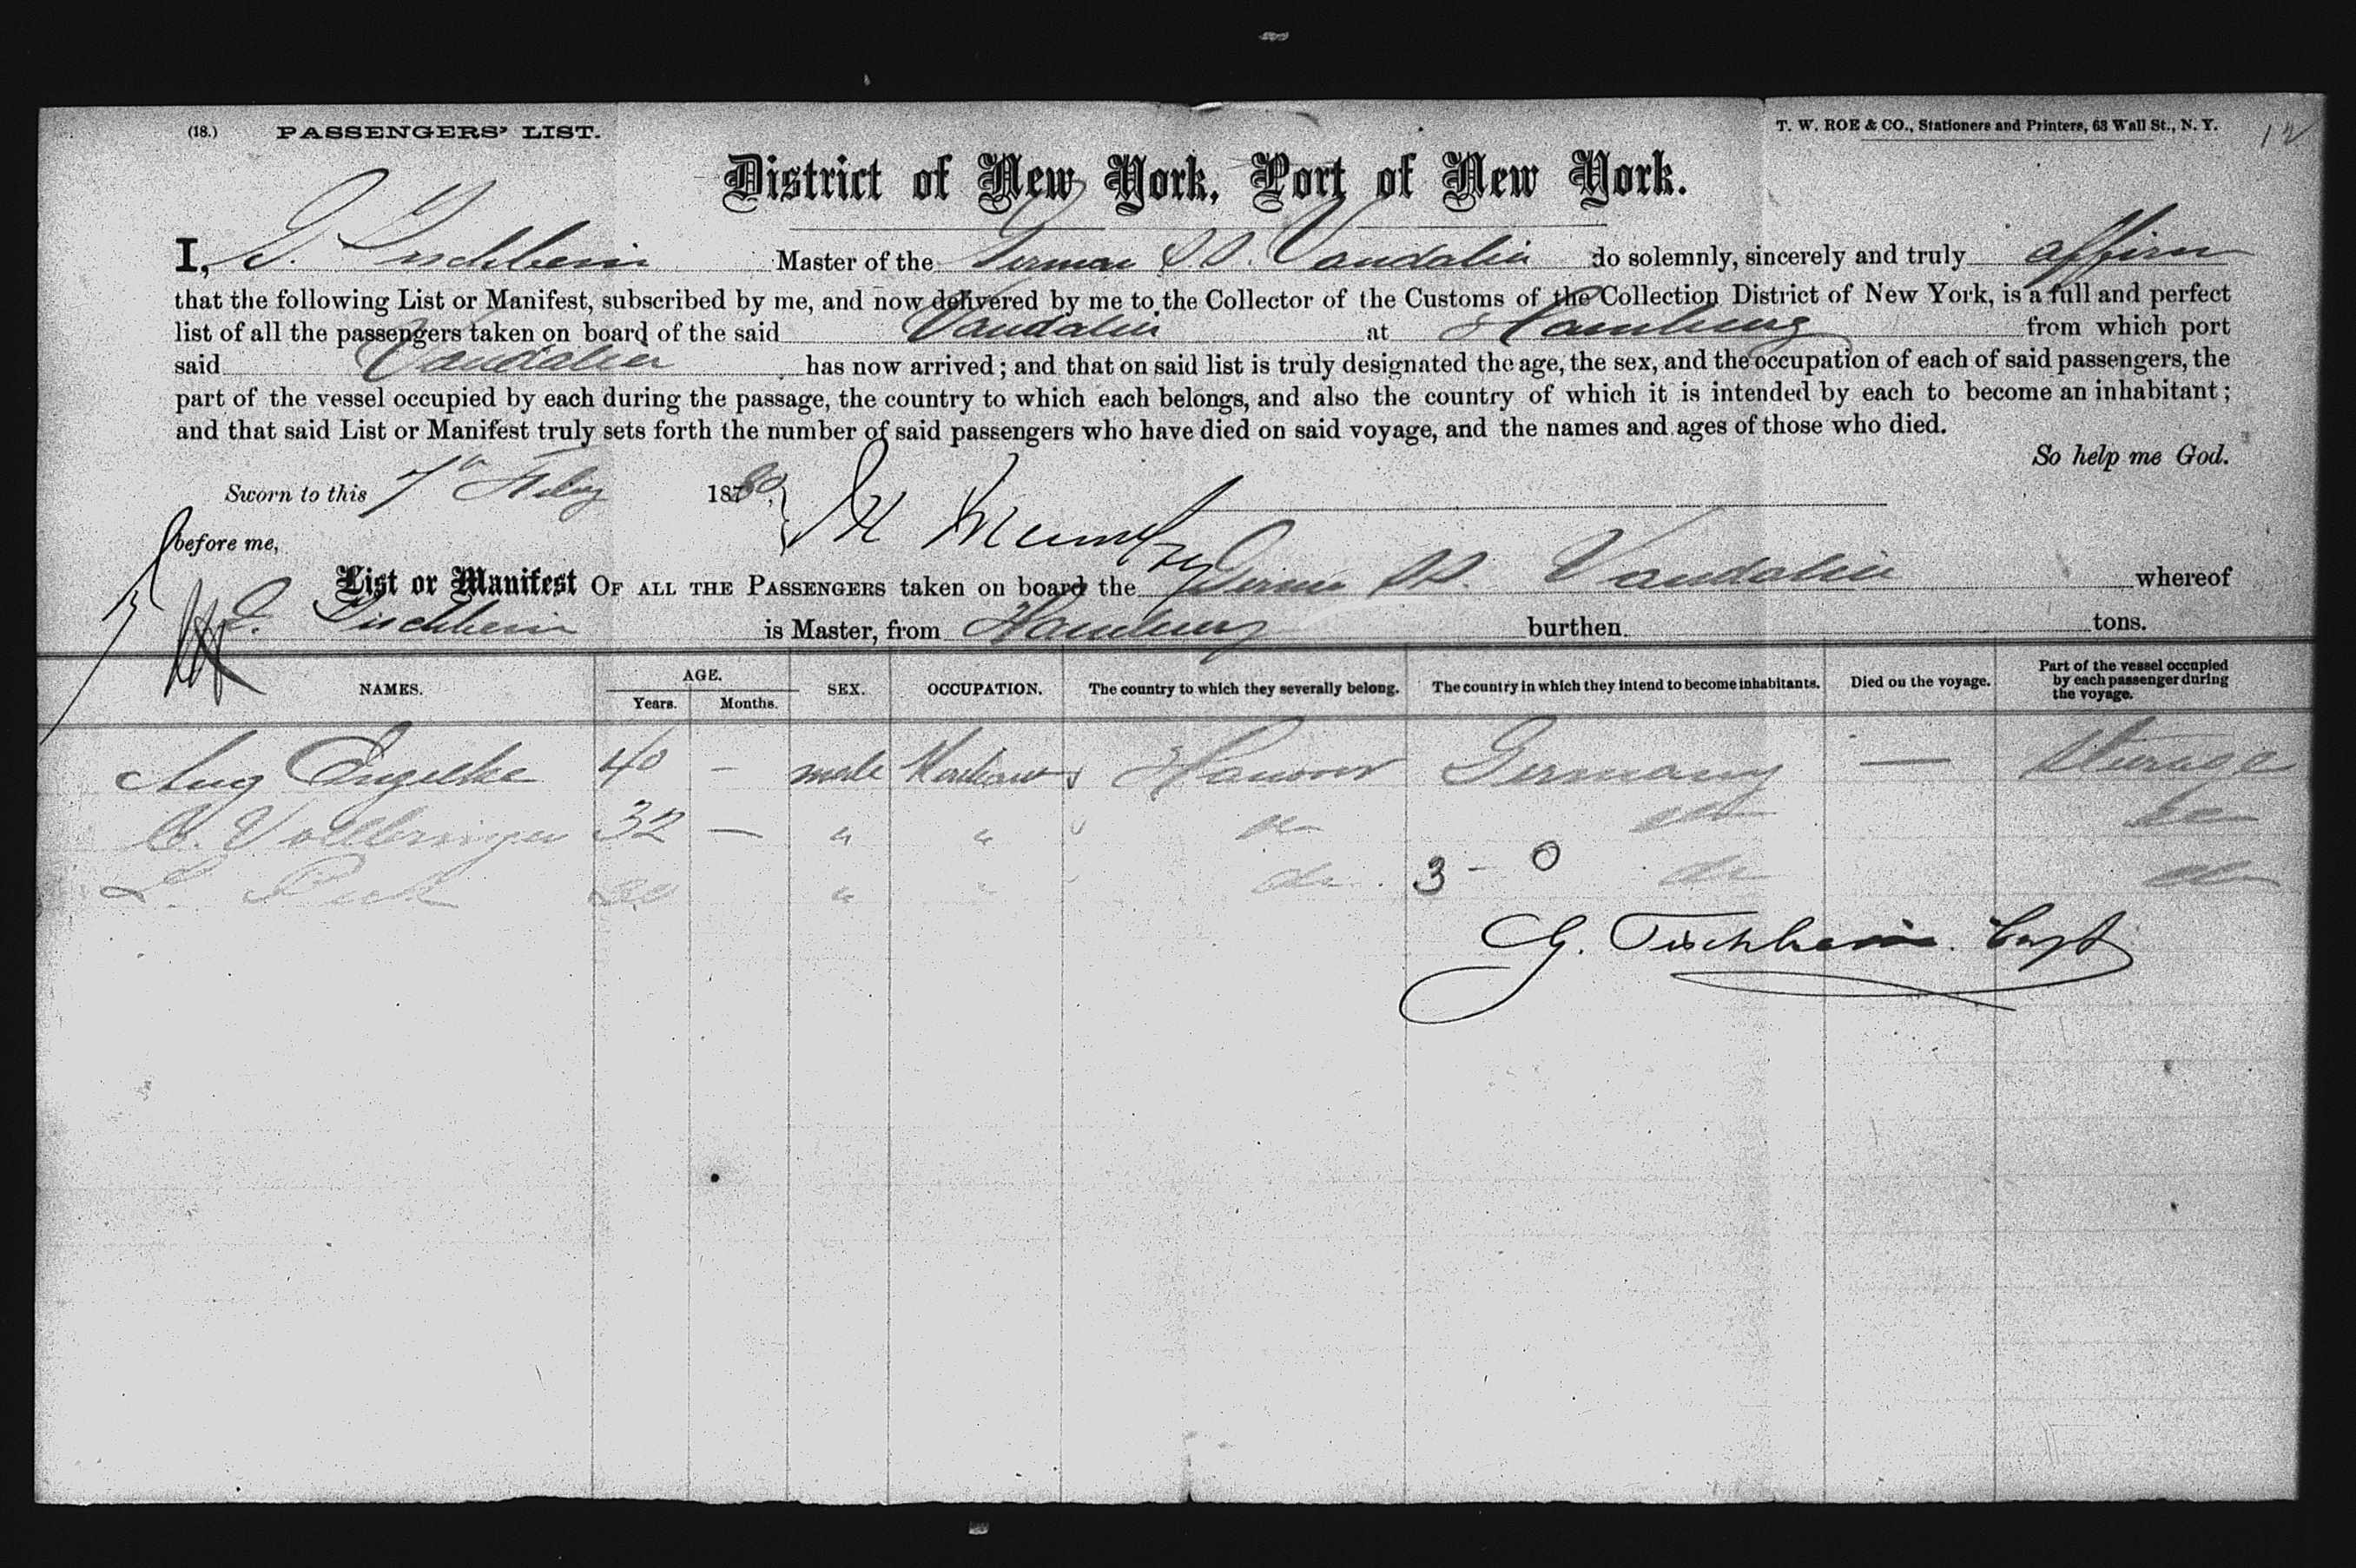 (18.) PASSENGERS' LIST.
T. W. ROE & CO., Stationers and Printers, 63 Wall St., N. Y.
District of New York, Port of New York.
I, G. Tischbein Master of the German S.S. Vandalia do solemnly, sincerely and truly affirm
that the following List or Manifest, subscribed by me, and now delivered by me to the Collector of the Customs of the Collection District of New York, is a full and perfect
list of all the passengers taken on board of the said Vandalia at Hamburg from which port
said Vandalia has now arrived; and that on said list is truly designated the age, the sex, and the occupation of each of said passengers, the
part of the vessel occupied by each during the passage, the country to which each belongs, and also the country of which it is intended by each to become an inhabitant;
and that said List or Manifest truly sets forth the number of said passengers who have died on said voyage, and the names and ages of those who died.
So help me God.
Sworn to this 7th Feby 1880
before me,
List or Manifest OF ALL THE PASSENGERS taken on board the German SS. Vandalia whereof
G. Tischbein is Master, from Hamburg burthen tons.
NAMES. AGE. Years. Months. SEX. OCCUPATION. The country to which they severally belong. The country in which they intend to become inhabitants. Died on the voyage. Part of the vessel occupied by each passenger during the voyage.
Aug Engelke 40 — male Hanover Germany — Steerage
32 — " " do do do
L. " " do 3 - 0 do do
G. Tischbein. Capt